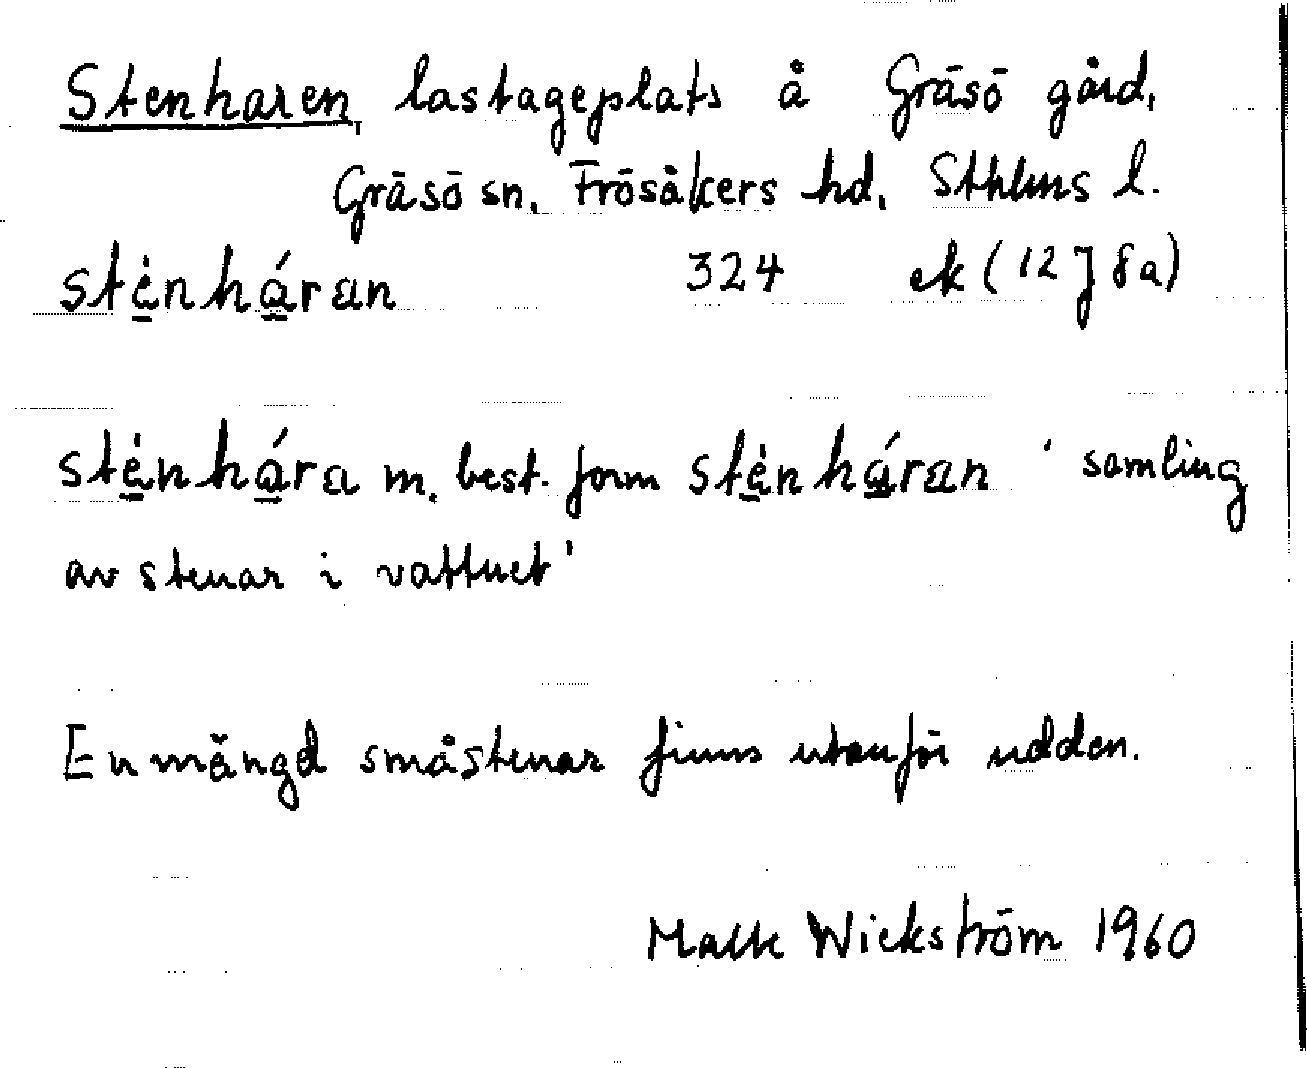 Stenharen, lastageplats å Gräsö gård,
Gräsö sn, Frösåkers hd, Sthlms l.
stė̱nhá̱ran 324 ek (12J8a)
stė̱nhá̱ra m. best. form stė̱nhá̱ran 'samling
av stenar i vattnet'
En mängd småstenar finns utanför udden.
Wickström 1960